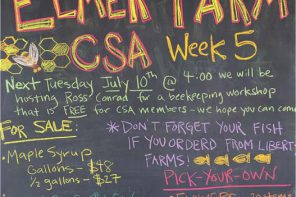 ELMER FARM
CSA WEEK 5
NEXT TUESDAY JULY 10th @ 4:00 we will be
hosting Ross Conrad for a beekeeping workshop
that is FREE for CSA members - we hope you can come
FOR SALE:
• Maple Syrup
Gallons - $48
1/2 gallons - $27
* DON'T FORGET YOUR FISH
IF YOU ORDERD FROM LIBERT-
FARMS!
PICK-YOUR-OWN